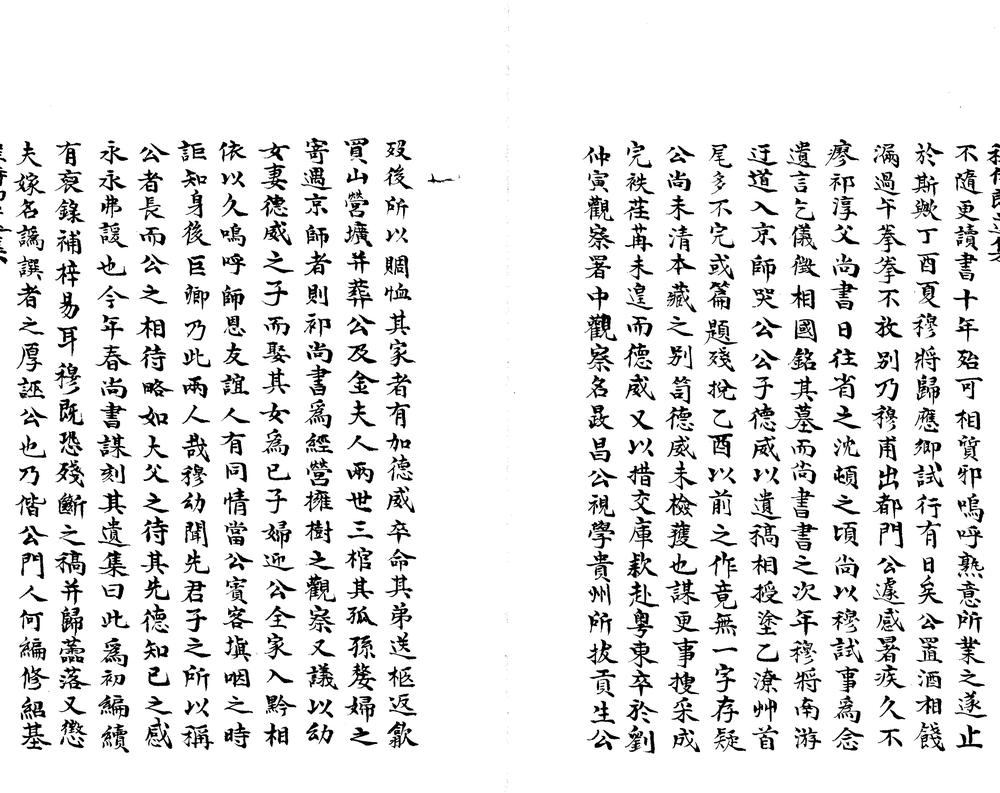 不隨更讀書十年殆可相質邪嗚呼熟意所業之遂止
於斯歟丁酉夏穆將歸應鄉試行有日矣公置酒相餞
漏過午拳拳不放別乃穆甫出都門公遽感暑疾久不
瘳祁淳父尚書日往省之沈頓之頃尚以穆試事為念
遺言乞儀徵相國銘其墓而尚書書之次年穆將南游
迂道入京師哭公公子德威以遺稿相授塗乙潦艸首
尾多不完或篇題殘挩乙酉以前之作竟無一字存疑
公尚未清本藏之別笥德威未檢獲也謀更事搜采成
完袟荏苒未遑而德威又以措交庫款赴粵東卒於劉
仲寅觀察署中觀察名晸昌公視學貴州所拔貢生公
歿後所以賙恤其家者有加德威卒命其弟送柩返歙
買山營壙并葬公及金夫人兩世三棺其孤孫嫠婦之
寄遇京師者則祁尚書為經營擁樹之觀察又議以幼
女妻德威之子而娶其女為己子婦迎公全家入黔相
依以久嗚呼師恩友誼人有同情當公賓客塡咽之時
詎知身後巨卿乃此兩人哉穆幼聞先君子之所以稱
公者長而公之相待略如大父之待其先德知已之感
永永弗諼也今年春尚書謀刻其遺集曰此為初編續
有裒錄補梓易耳穆既恐殘斷之稿并歸蘦落又懲
夫嫁名譌譔者之厚誣公也乃偕公門人何編修紹基